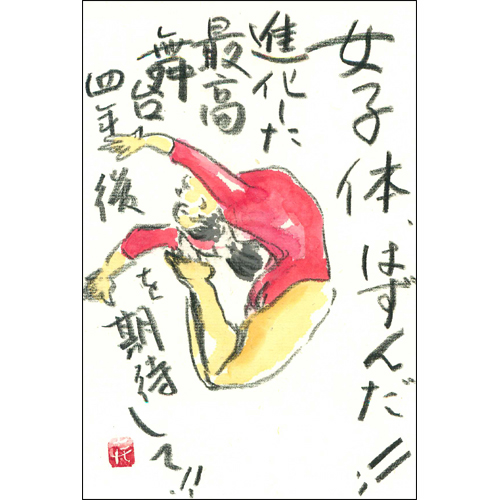 女子体、はずんだ!!
進化した
最高
舞台
四年後
を期待して!!